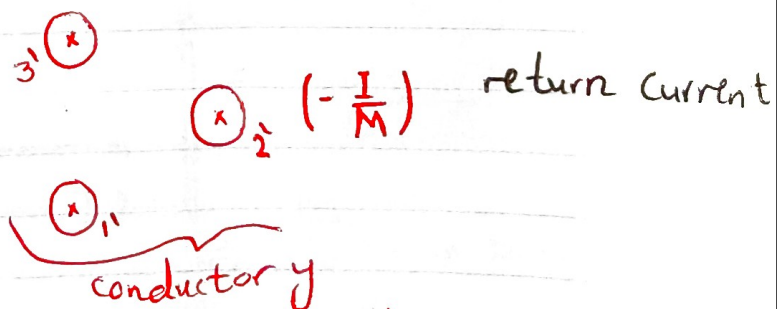 3'
x
2' (- I/M) return current
x
1'
x
conductor y